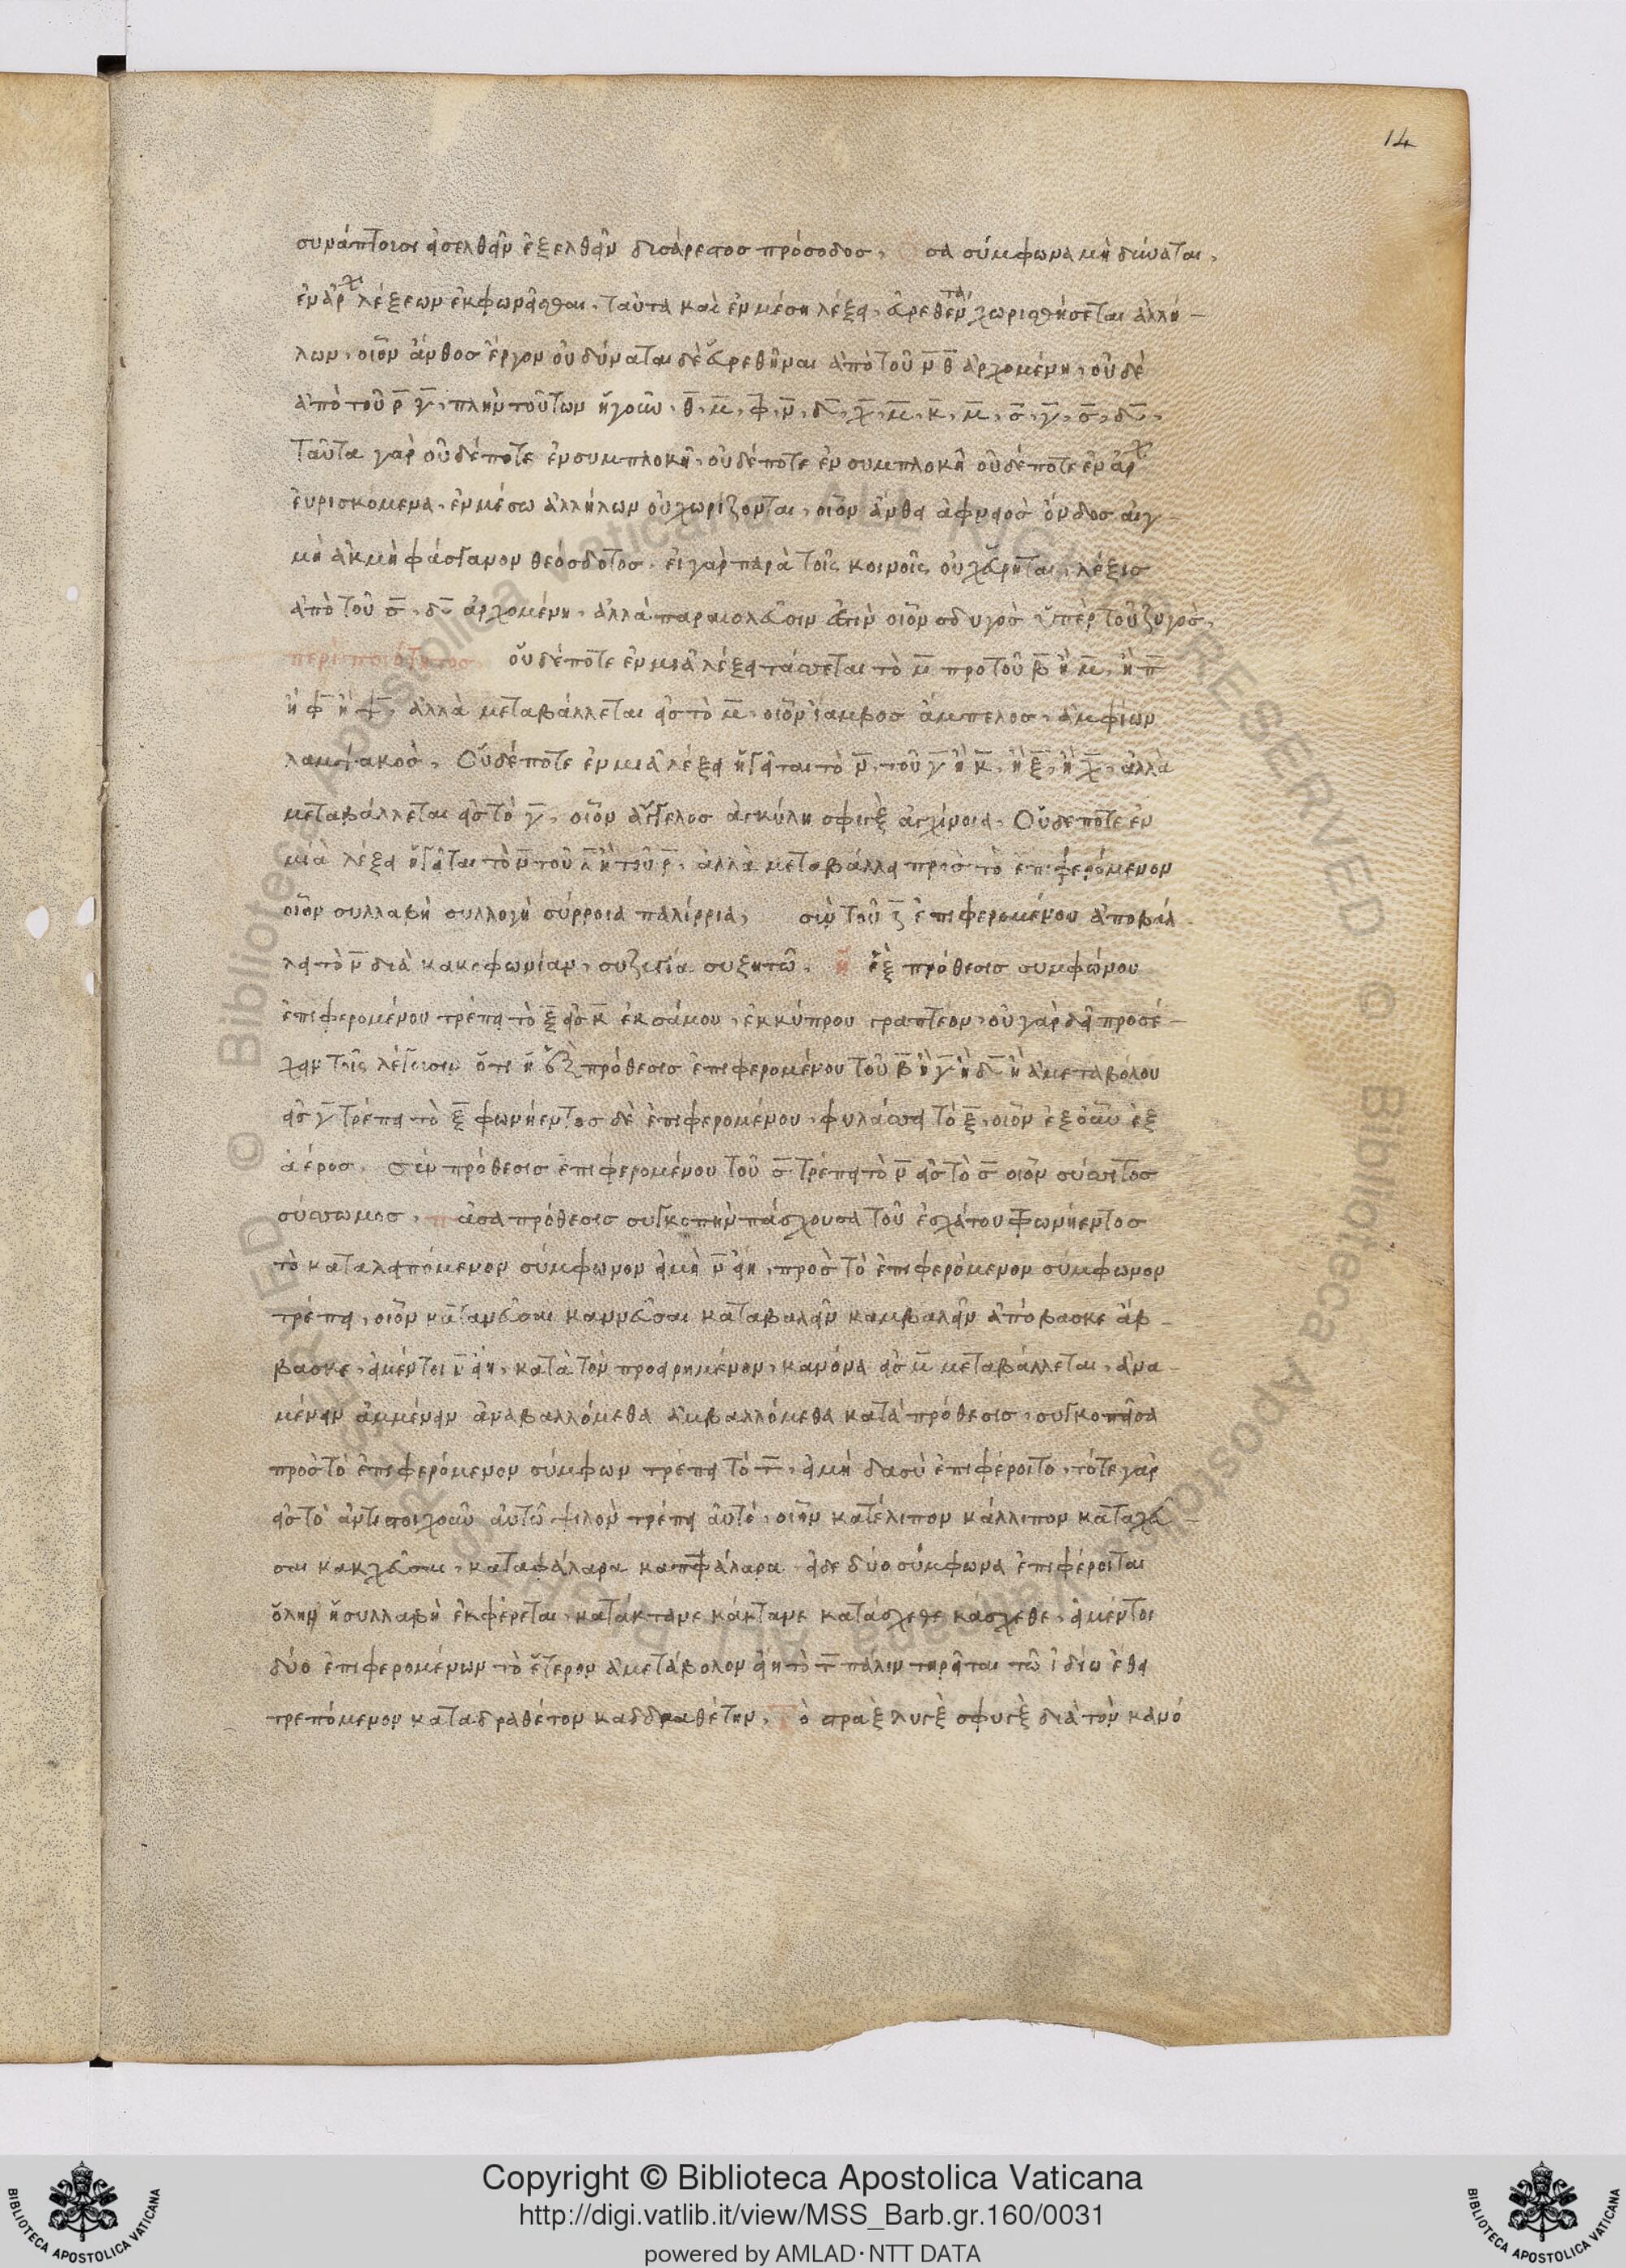 14
συνάπτοισι εἰσελθεῖν ἐξελθεῖν δυσάρεστος πρόσοδος, σα σύμφωνα μὴ δύναται,
ἐν ἀρχ λέξεων ἐκφωνεῖσθαι, ταῦτα καὶ ἐν μέση λέξει, εὑρεθέντα χωρισθήσεται ἀλλή-
λων, οἷον ἄνθος ἔργον οὐ δύναται δὲ εὑρεθῆναι ἀπὸ τοῦ ν θ ἀρχομένη, οὐδὲ
ἀπὸ τοῦ ρ γ, πλὴν τούτων ἤγουν, θ, μ, φ, ν, δ, χ, μ, κ, μ, σ, γ, σ, δ,
Ταῦτα γὰρ οὐδέποτε ἐν συμπλοκῆ, οὐδέποτε ἐν συμπλοκῆ οὐδέποτε ἐν ἀρχ
εὑρισκόμενα, ἐν μέσω ἀλλήλων οὐ χωρίζονται, οἷον ἄνθει ἀφνειὸς ὄνδος αἰγ-
μὴ ἀκμὴ φάσγανον θεόσδοτος, εἰ γὰρ παρὰ τοῖς κοινοῖς οὐχ εὕρηται, λέξις
ἀπὸ τοῦ σ, δ ἀρχομένη, ἀλλὰ παρ αἰολεῦσιν ἐστὶν οἷον σδυγὸς ὑπὲρ τοῦ ζυγὸς,
περὶ ποιότητος οὐδέποτε ἐν μιᾶ λέξει τάσσεται τὸ ν προ τοῦ β ἢ μ, ἢ π
ἢ φ ἢ ψ, ἀλλὰ μεταβάλλεται εἰς τὸ μ, οἷον ἴαμβος ἄμπελος, ἀμφίων
λαμψακος, Οὐδέποτε ἐν μιᾶ λέξει ἡγεῖται τὸ ν, τοῦ γ ἢ κ, ἢ ξ, ἢ χ, ἀλλὰ
μεταβάλλεται εἰς τὸ γ, οἷον ἄγγελος ἀγκύλη σφιγξ ἀγχίνοια, Οὐδεποτε ἐν
μιᾶ λέξει ἡγεῖται τὸ ν τοῦ λ ἢ τοῦ ρ, ἀλλὰ μεταβάλλει πρὸς τὸ ἐπιφερόμενον
οἷον συλλαβὴ συλλογὴ σύρροια παλίρροια, σὺν τοῦ ζ ἐπιφερομένου ἀποβάλ-
λει τὸ ν διὰ κακοφωνίαν, συζυγία συζητῶ, ἡ ἐξ πρόθεσις συμφώνου
ἐπιφερομένου τρέπει τὸ ξ εἰς κ ἐκ σάμου, ἐκ κύπρου γραπτέον, οὐ γὰρ δεῖ προσέ-
χειν τοῖς λέγουσιν ὅτι ἡ ἐξ πρόθεσις ἐπιφερομένου τοῦ β ἢ γ ἢ δ ἢ ἀμεταβόλου
εἰς γ τρέπει τὸ ξ φωνήεντος δὲ ἐπιφερομένου, φυλάσσει τὸ ξ, οἷον ἐξ ὧν ἐξ
ἀέρος, Σὺν πρόθεσις ἐπιφερομένου τοῦ σ τρέπει τὸ ν εἰς τὸ σ οἷον σύσσιτος
σύσσωμος, πᾶσα πρόθεσις συγκοπὴν πάσχουσα τοῦ ἐσχάτου φωνήεντος
τὸ καταλειπόμενον σύμφωνον εἰ μὴ ν εἴη, πρὸς τὸ ἐπιφερόμενον σύμφωνον
τρέπει, οἷον κατανεῦσαι καννεῦσαι καταβαλεῖν καμβαλεῖν ἀπόβασκε ἀβ-
βασκε, εἰ μέντοι ν εἴη, κατὰ τὸν προειρημένον, κανόνα εἰς μ μεταβάλλεται, ἀνα-
μένειν ἀμμένειν ἀναβαλλόμεθα ἀμβαλλόμεθα κατὰ πρόθεσις, συγκοπεῖσα
πρὸς τὸ ἐπιφερόμενον σύμφων τρέπει τὸ τ, εἰ μὴ δασὺ ἐπιφέροιτο, τότε γὰρ
εἰς τὸ ἀντιστοιχοῦν αὐτῶ ψιλὸν τρέπει αὐτὸ, οἷον κατέλιπον κάλλιπον καταχεῦ-
σαι κακχεῦσαι, καταφάλαρα καπφάλαρα, εἰ δε δύο σύμφωνα ἐπιφέροιται
ὅλην ἡ συλλαβὴ ἐκφέρεται, κατάκτανε κάκτανε κατάσχεθε κάσχεθε, εἰ μέντοι
δύο ἐπιφερομένων τὸ ἕτερον ἀμετάβολον εἴη τὸ τ πάλιν τηρεῖται τῶ ἰδίω ἔθει
τρεπόμενον καταδραθέτον καδδραθέτην, Τὸ σπραξ λυγξ σφυγξ διὰ τὸν κανό
Copyright © Biblioteca Apostolica Vaticana
http://digi.vatlib.it/view/MSS_Barb.gr.160/0031
powered by AMLAD·NTT DATA